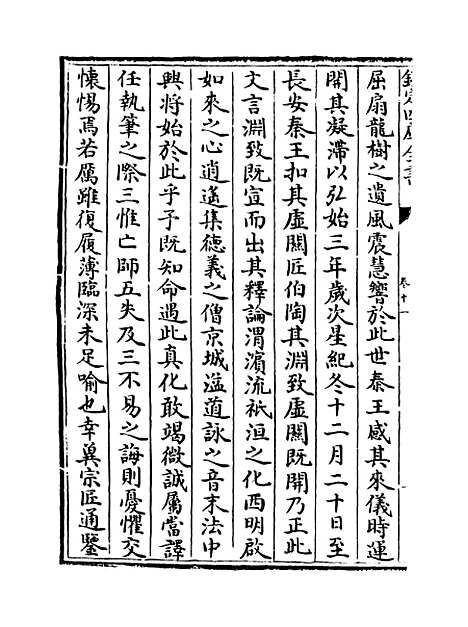 欽定四庫全書
卷十一
屈扇龍樹之遺風震慧響於此世秦王感其來儀時運
開其凝滯以弘始三年歲次星紀冬十二月二十日至
長安秦王扣其虛關匠伯陶其淵致虛關既開乃正此
文言淵致既宣而出其釋論渭濱流祇洹之化西明啟
如來之心逍遙集德義之僧京城溢道詠之音末法中
興將始於此乎予既知命遇此真化敢竭微誠屬當譯
任執筆之際三惟亡師五失及三不易之誨則憂懼交
懷惕焉若厲雖復履薄臨深未足喻也幸冀宗匠通鑒